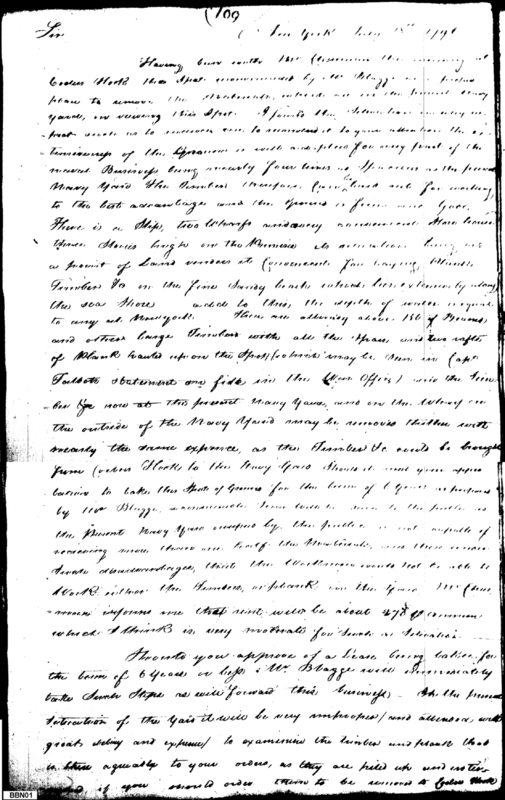 (109
Sir New York July 1796
Having been with Mr Cheesman this morning at
Corlers Hook the Spot mentioned by Mr Blagge as a proper
place to remove the Materials, which are in the present Navy
Yard, on viewing this Spot I found the Situation in every re-
spect such as to induce me to recommend it to your attention the ex-
tensiveness of the Ground is well adapted for every part of the
Business being nearly four times as Spacious as the present
Navy Yard The Timber therefore can be laid out for working
to the best advantage and the Ground is firm and Good
There is a Slip, two Wharfs and a very convenient Store house
three Stories high on the Premises its situation being at
a point of Land renders it Convenient for laying
Timber &c on the fine Sandy beach which lies along
the sea Shore add to this, the depth of water is equal
to any at New York. There are already about 150 of Beams
and other large Timbers with all the Spars and two rafts
of Plank hauled up on the Spot (which may be seen in Capt
Talbots statement on file in the War Office) and the Tim-
ber &c now at the present Navy Yard, and on the Wharf on
the outside of the Navy Yard may be removed thither with
nearly the same expence, as the Timber &c could be brought
from Corlers Hook to the Navy Yard Should it meet your appro-
bation to take this Spot of Ground for the term of 6 Years as proposed
by Mr Blagge, to the public as
the Present Navy Yard occupied by the public is not capable of
receiving more than one half the Materials, and then under
such disadvantages, that the Workmen would not be able to
Work either the Timber, or plank in the Yard Mr Chees-
man informs me that rent will be about
which I think is very moderate for such a Situation
Should you approve of a Lease being taken for
the term of 6 Years or less, Mr Blagge will immediately
take Such Steps as will forward this business. In the present
Situation of the Yard it will be very improper (and attended with
great delay and expence) to examine the timber and plank that
is there agreeably to your orders, as they are piled up
and if you should order them to be removed to Corlers Hook
BBN01